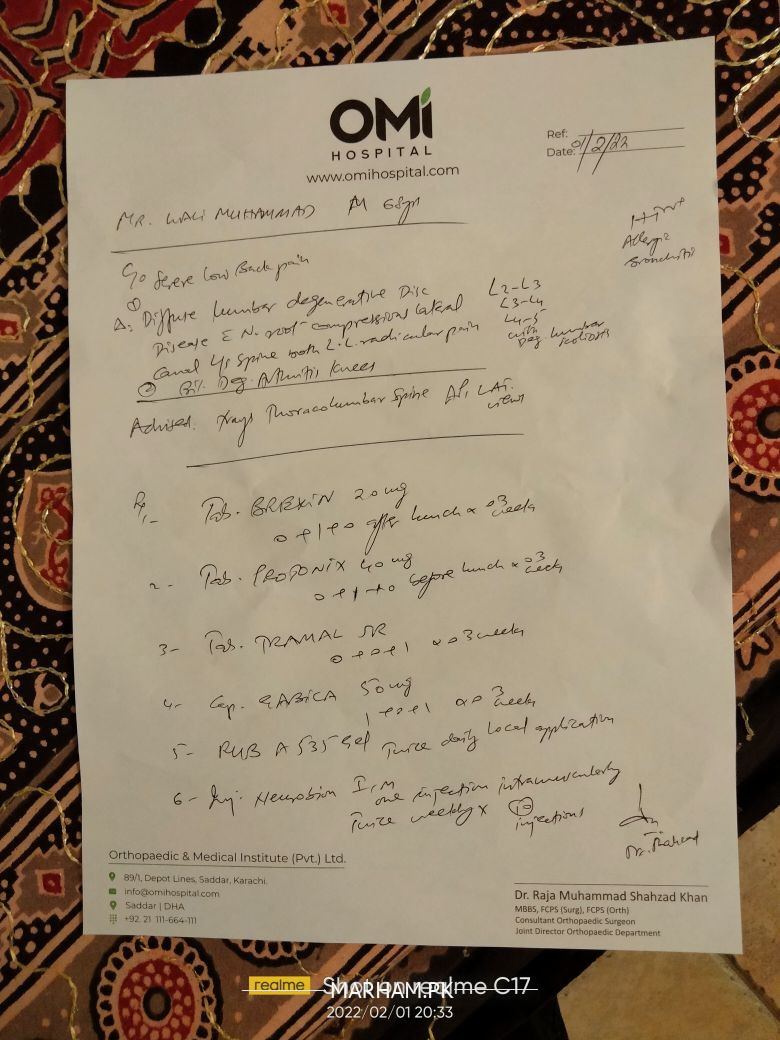 OMi
HOSPITAL
www.omihospital.com
Ref:
Date: 01/2/22
MR. WALI MUHAMMAD M 68yr
HTN
Allergic
Bronchitis
C/o Severe Low Back pain
Δ: ① Diffuse lumbar degenerative Disc
Disease c N. root compressions lateral
canal L/S Spine both L.L. radicular pain
L2-L3
L3-L4
L4-5
with
Deg lumbar
scoliosis
② Bil. Deg. Arthritis Knees
Advised. Xrays Thoracolumbar Spine AP, LAT.
views
Rx 1- Tab. BREXIN 20mg
0+1+0 after lunch x 03
weeks
2- Tab. PROTONIX 40mg
0+1+0 before lunch x 03
weeks
3- Tab. TRAMAL SR
0+0+1 x 03 weeks
4- Cap. GABICA 50mg
1+0+1 x 03
weeks
5- RUB A535 Gel Twice daily Local application
6- Inj. Neurobion I.M
one injection intramuscularly
Twice weekly x 10
injections
Dr. Shahzad
Orthopaedic & Medical Institute (Pvt.) Ltd.
89/1, Depot Lines, Saddar, Karachi.
info@omihospital.com
Saddar | DHA
+92. 21 111-664-111
Dr. Raja Muhammad Shahzad Khan
MBBS, FCPS (Surg), FCPS (Orth)
Consultant Orthopaedic Surgeon
Joint Director Orthopaedic Department
realme Shot on realme C17
MARHAM.PK
2022/02/01 20:33